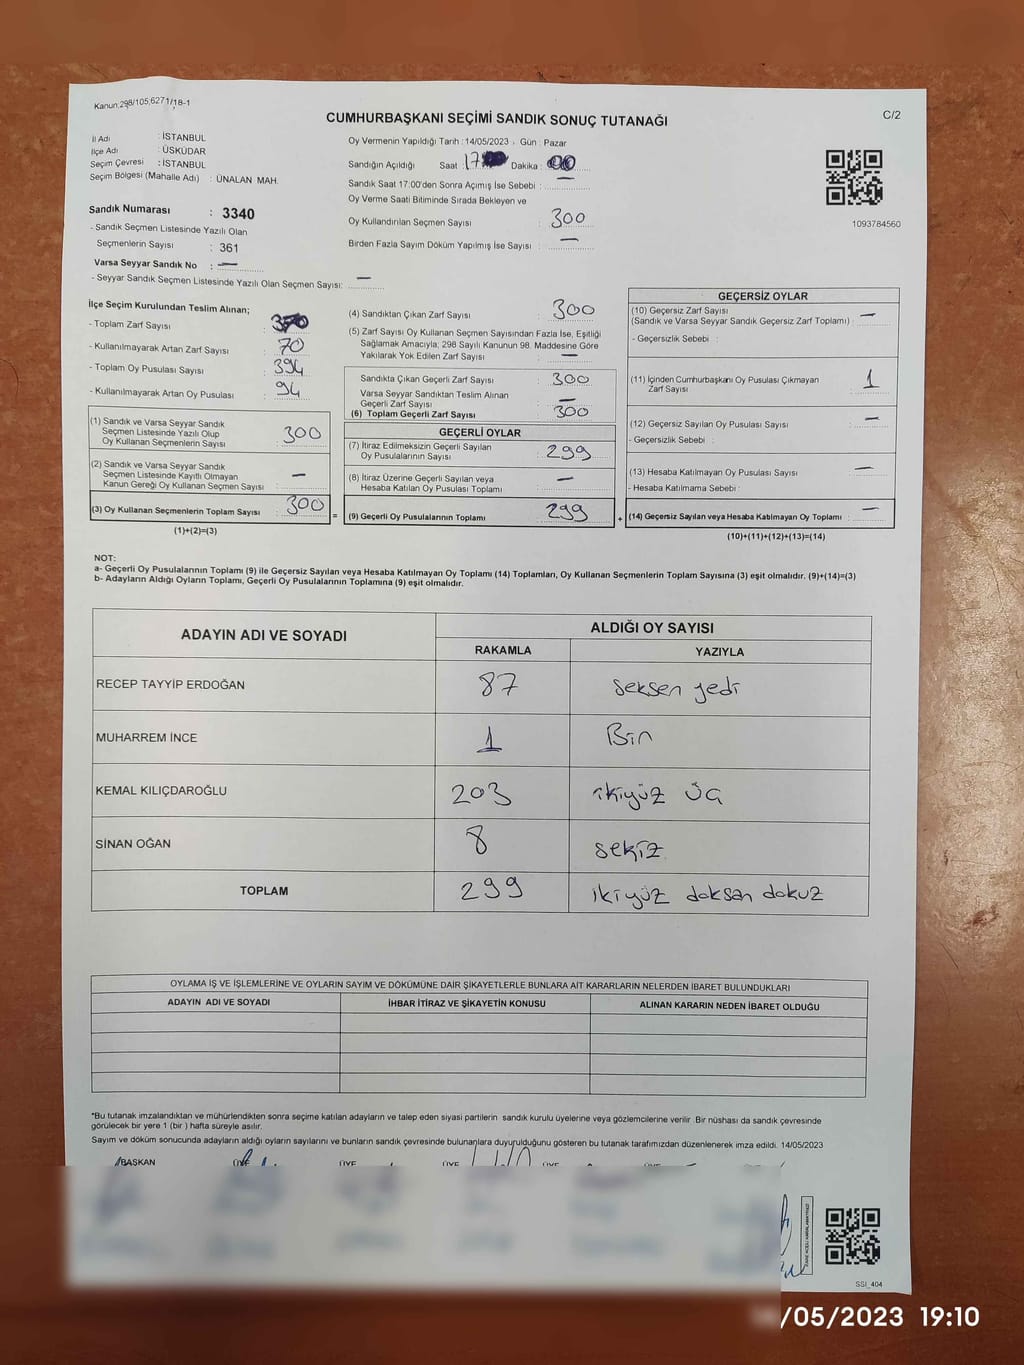 Kanun:298/105,6271/18-1
CUMHURBAŞKANI SEÇİMİ SANDIK SONUÇ TUTANAĞI
C/2
İl Adı : İSTANBUL
İlçe Adı : ÜSKÜDAR
Seçim Çevresi : İSTANBUL
Seçim Bölgesi (Mahalle Adı) : ÜNALAN MAH.
Sandık Numarası : 3340
- Sandık Seçmen Listesinde Yazılı Olan
Seçmenlerin Sayısı : 361
Varsa Seyyar Sandık No : —
- Seyyar Sandık Seçmen Listesinde Yazılı Olan Seçmen Sayısı: —
Oy Vermenin Yapıldığı Tarih : 14/05/2023 , Gün : Pazar
Sandığın Açıldığı Saat : 17 Dakika : 00
Sandık Saat 17:00'den Sonra Açımış İse Sebebi : —
Oy Verme Saati Bitiminde Sırada Bekleyen ve
Oy Kullandırılan Seçmen Sayısı : 300
Birden Fazla Sayım Döküm Yapılmış İse Sayısı : —
1093784560
İlçe Seçim Kurulundan Teslim Alınan;
- Toplam Zarf Sayısı : 370
- Kullanılmayarak Artan Zarf Sayısı : 70
- Toplam Oy Pusulası Sayısı : 394
- Kullanılmayarak Artan Oy Pusulası : 94
(1) Sandık ve Varsa Seyyar Sandık
Seçmen Listesinde Yazılı Olup
Oy Kullanan Seçmenlerin Sayısı : 300
(2) Sandık ve Varsa Seyyar Sandık
Seçmen Listesinde Kayıtlı Olmayan
Kanun Gereği Oy Kullanan Seçmen Sayısı : —
(3) Oy Kullanan Seçmenlerin Toplam Sayısı : 300
(1)+(2)=(3)
=
(4) Sandıktan Çıkan Zarf Sayısı : 300
(5) Zarf Sayısı Oy Kullanan Seçmen Sayısından Fazla İse, Eşitliği
Sağlamak Amacıyla; 298 Sayılı Kanunun 98. Maddesine Göre
Yakılarak Yok Edilen Zarf Sayısı : —
Sandıkta Çıkan Geçerli Zarf Sayısı : 300
Varsa Seyyar Sandıktan Teslim Alınan
Geçerli Zarf Sayısı : —
(6) Toplam Geçerli Zarf Sayısı : 300
GEÇERLİ OYLAR
(7) İtiraz Edilmeksizin Geçerli Sayılan
Oy Pusulalarının Sayısı : 299
(8) İtiraz Üzerine Geçerli Sayılan veya
Hesaba Katılan Oy Pusulası Toplamı : —
(9) Geçerli Oy Pusulalarının Toplamı : 299
+
GEÇERSİZ OYLAR
(10) Geçersiz Zarf Sayısı
(Sandık ve Varsa Seyyar Sandık Geçersiz Zarf Toplamı) : —
- Geçersizlik Sebebi :
(11) İçinden Cumhurbaşkanı Oy Pusulası Çıkmayan
Zarf Sayısı : 1
(12) Geçersiz Sayılan Oy Pusulası Sayısı : —
- Geçersizlik Sebebi :
(13) Hesaba Katılmayan Oy Pusulası Sayısı : —
- Hesaba Katılmama Sebebi :
(14) Geçersiz Sayılan veya Hesaba Katılmayan Oy Toplamı : —
(10)+(11)+(12)+(13)=(14)
NOT:
a- Geçerli Oy Pusulalarının Toplamı (9) ile Geçersiz Sayılan veya Hesaba Katılmayan Oy Toplamı (14) Toplamları, Oy Kullanan Seçmenlerin Toplam Sayısına (3) eşit olmalıdır. (9)+(14)=(3)
b- Adayların Aldığı Oyların Toplamı, Geçerli Oy Pusulalarının Toplamına (9) eşit olmalıdır.
ADAYIN ADI VE SOYADI
ALDIĞI OY SAYISI
RAKAMLA YAZIYLA
RECEP TAYYİP ERDOĞAN 87 seksen yedi
MUHARREM İNCE 1 Bir
KEMAL KILIÇDAROĞLU 203 ikiyüz üç
SİNAN OĞAN 8 sekiz
TOPLAM 299 ikiyüz doksan dokuz
OYLAMA İŞ VE İŞLEMLERİNE VE OYLARIN SAYIM VE DÖKÜMÜNE DAİR ŞİKAYETLERLE BUNLARA AİT KARARLARIN NELERDEN İBARET BULUNDUKLARI
ADAYIN ADI VE SOYADI İHBAR İTİRAZ VE ŞİKAYETİN KONUSU ALINAN KARARIN NEDEN İBARET OLDUĞU
*Bu tutanak imzalandıktan ve mühürlendikten sonra seçime katılan adayların ve talep eden siyasi partilerin sandık kurulu üyelerine veya gözlemcilerine verilir. Bir nüshası da sandık çevresinde
görülecek bir yere 1 (bir ) hafta süreyle asılır.
Sayım ve döküm sonucunda adayların aldığı oyların sayılarını ve bunların sandık çevresinde bulunanlara duyurulduğunu gösteren bu tutanak tarafımızdan düzenlenerek imza edildi. 14/05/2023
BAŞKAN ÜYE ÜYE ÜYE ÜYE ÜYE
SSI_404
/05/2023 19:10